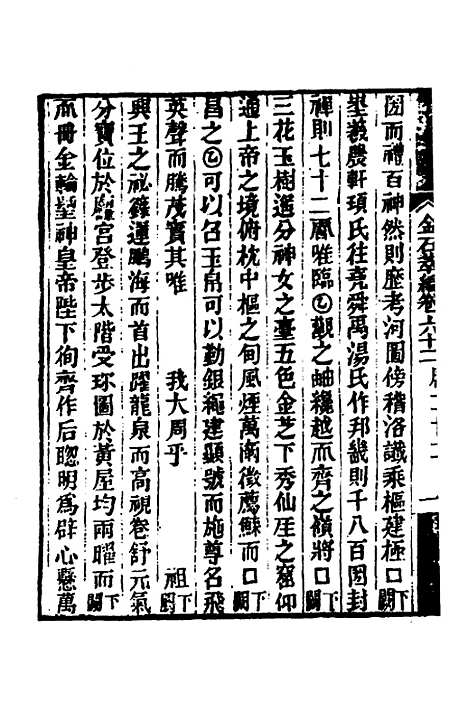 金石萃編卷六十二 周二
圀而禮百神然則歷考河圖傍稽洛讖乘樞建極囗下闕
埊羲農軒頊氏往堯舜禹湯氏作邦畿則千八百圀封
禪則七十二凮雅臨𡆠觀之岫纔越而齊之嶺將囗下闕
三花玉樹邐分神女之臺五色金芝下秀仙厓之窟仰
通上帝之境俯枕中樞之甸風煙萬南徵薦蘇而囗下闕
昌之𡆠可以召玉帛可以勒銀繩建顯號而施尊名飛
英聲而騰茂實其唯 我大周乎 祖下闕
興王之祕籙運鵬海而首出躍龍泉而高視卷舒元氣
分寶位於宮登步太階受珎圖於黃屋均兩曜而下闕
而冊金輪埾神皇帝陛下徇齊作后聰明為辟心懸萬